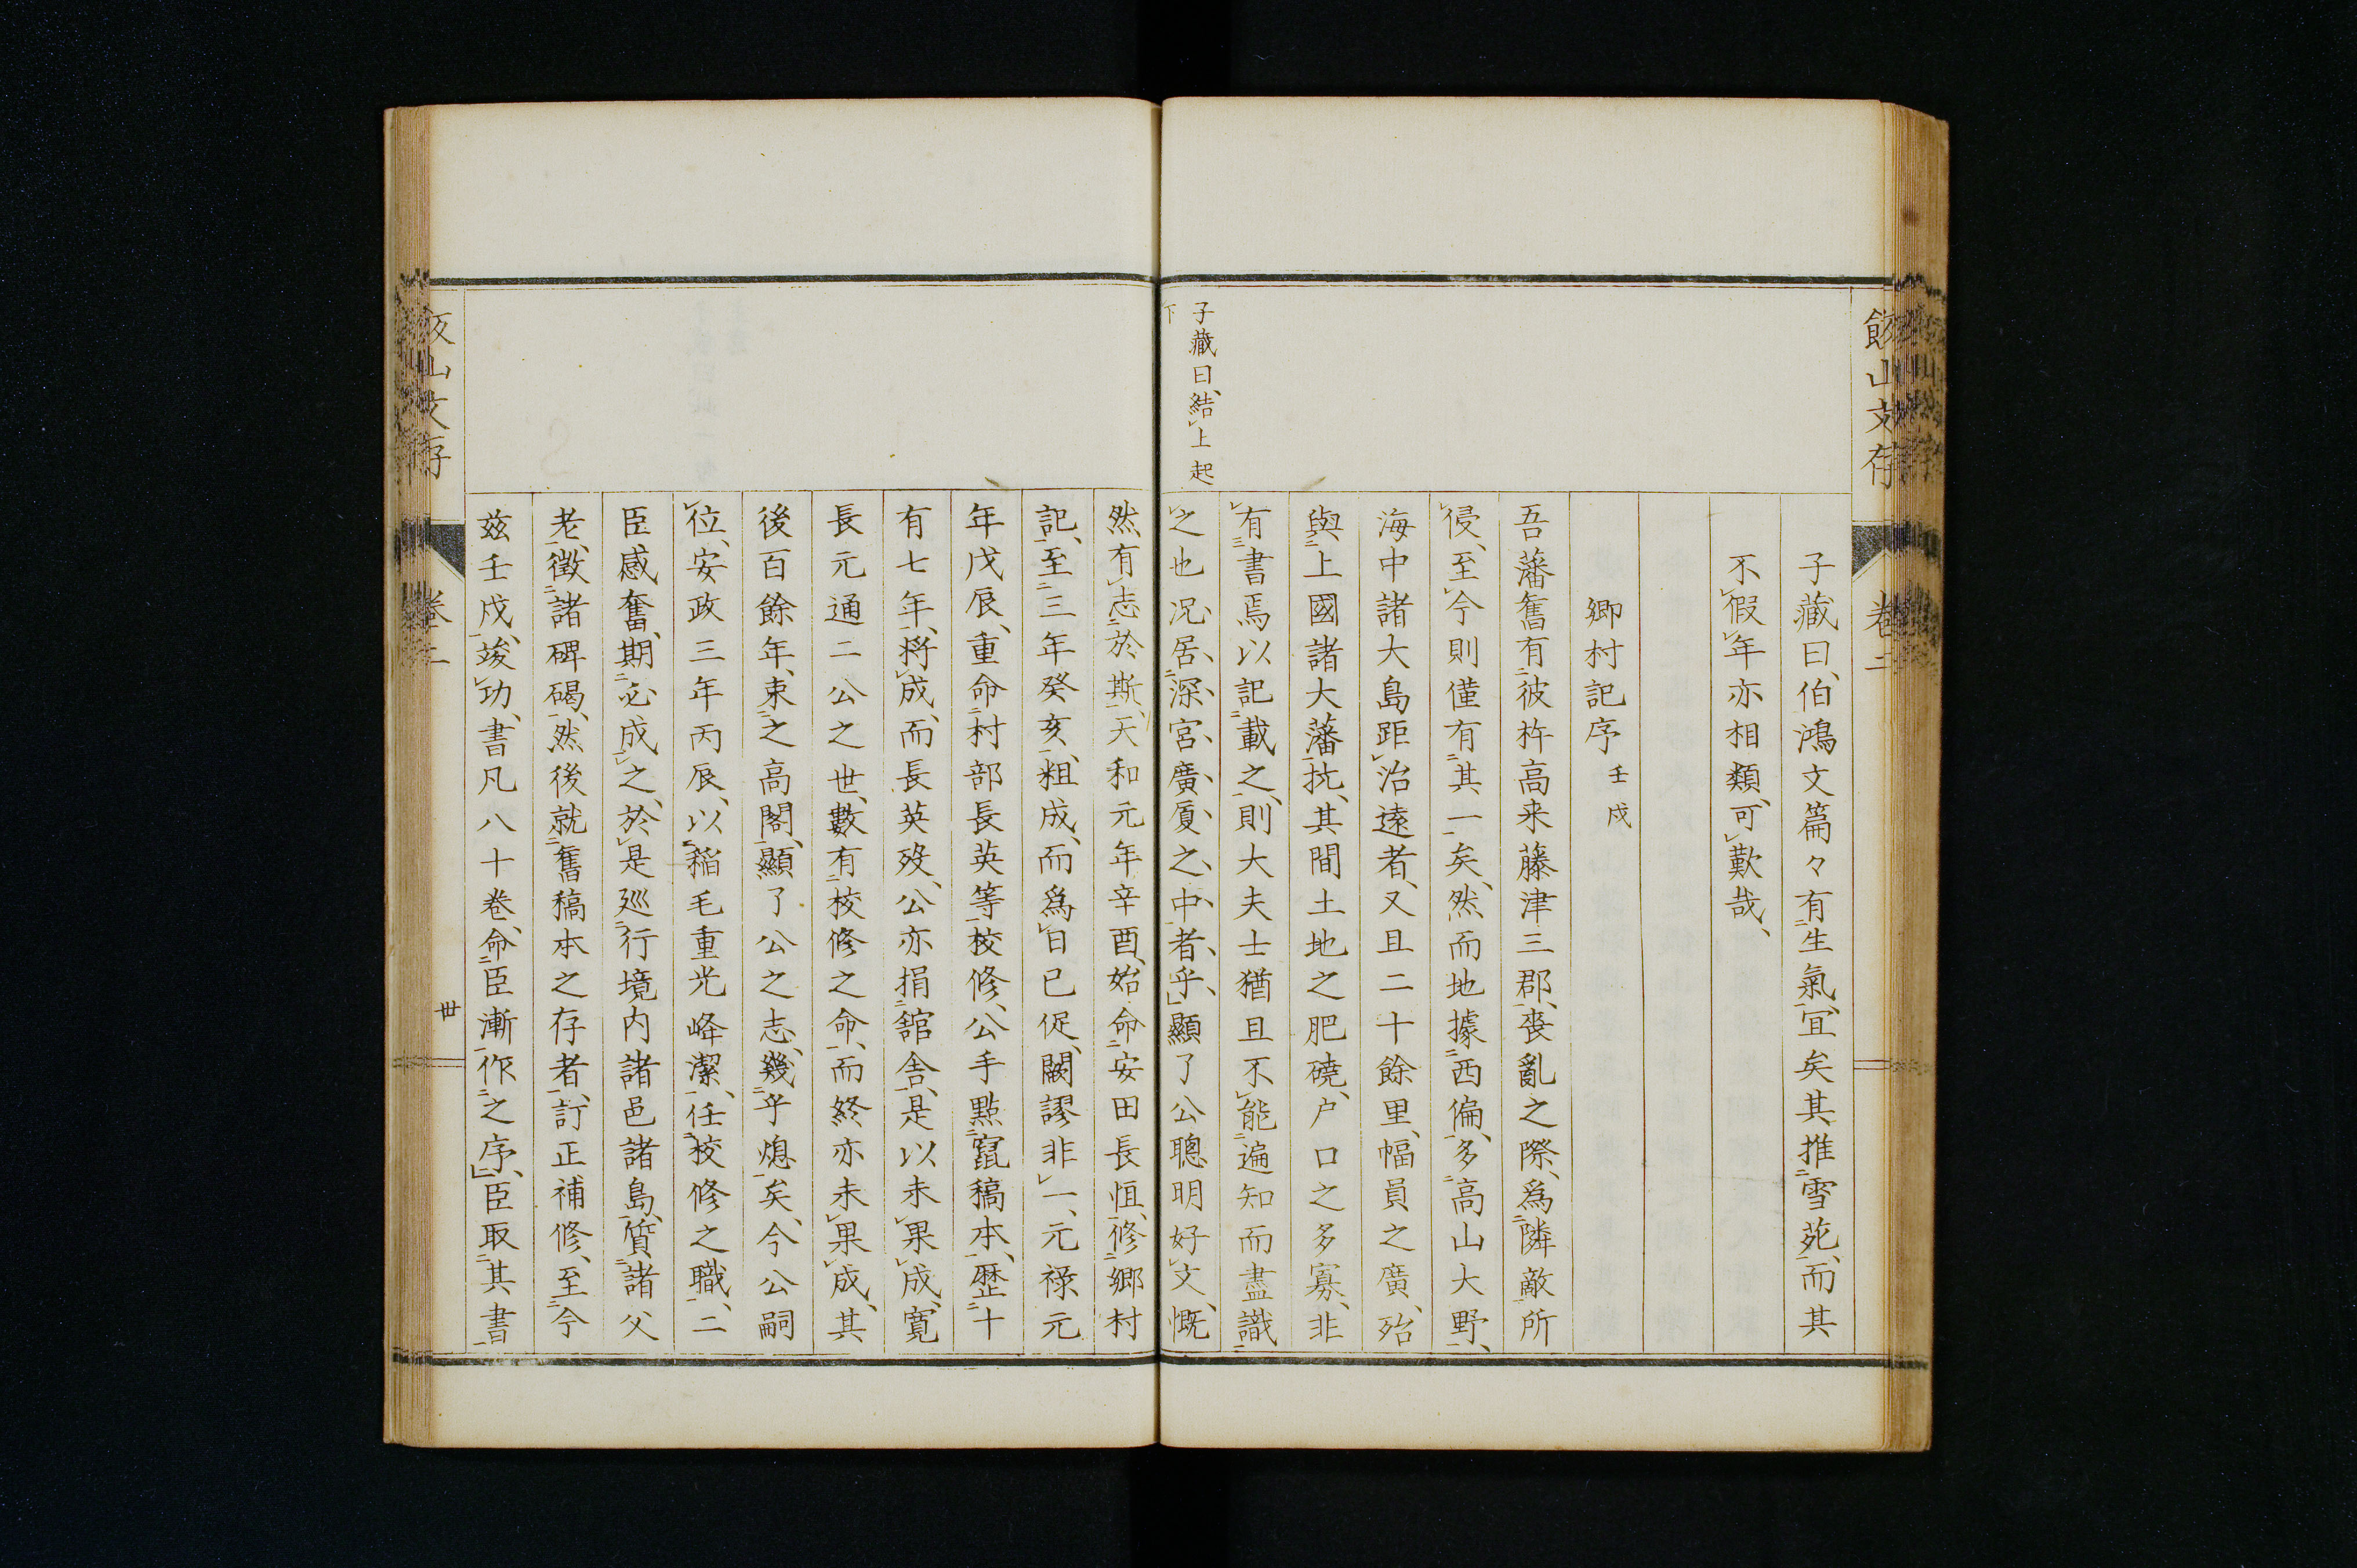 飯山文存
卷二
子藏曰、伯鴻文篇々有生氣、冝矣其推雪苑、而其
不假年亦相類、可歎哉、
鄉村記序 壬戌
吾藩舊有彼杵高来藤津三郡、喪亂之際、爲隣敵所
侵、至今則僅有其一矣、然而地據西偏、多高山大野、
海中諸大島距治遠者、又且二十餘里、幅員之廣、殆
與上國諸大藩抗、其間土地之肥磽、户口之多寡、非
有書焉以記載之、則大夫士猶且不能遍知而盡識
之也況居深宮廣厦之中者乎、顯了公聰明好文、慨
子藏曰、結上起
下
然有志於斯、天和元年辛酉、始命安田長恒、修鄉村
記、至三年癸亥、粗成、而爲日已促、闕謬非一、元祿元
年戊辰、重命村部長英等校修、公手點竄稿本、歷十
有七年、將成、而長英歿、公亦捐舘舎、是以未果成、寬
長元通二公之世、數有校修之命、而終亦未果成、其
後百餘年、束之高閣、顯了公之志、幾乎熄矣、今公嗣
位、安政三年丙辰、以稲毛重光峰潔、任校修之職、二
臣感奮、期必成之、於是巡行境内諸邑諸島、質諸父
老、徵諸碑碣、然後就舊稿本之存者、訂正補修、至今
茲壬戌、竣功、書凡八十卷、命臣漸作之序、臣取其書
飯山文存
卷二
丗